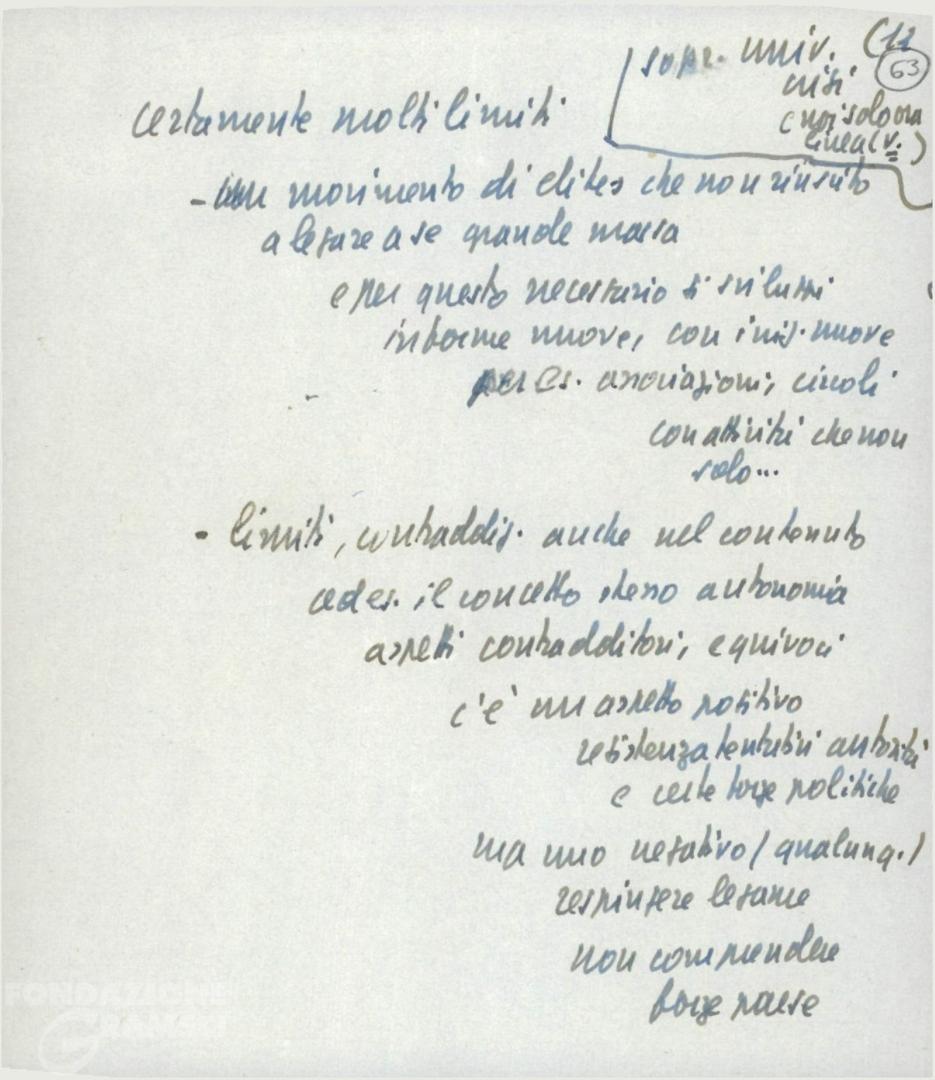 (12
63
sopr. univ.
crisi
(noi solo una
linea (v.)
certamente molti limiti
- un movimento di elites che non riuscito
a legare a se grande massa
e per questo necessario si sviluppi
in forme nuove, con iniz. nuove
per es. associazioni, circoli
con attività che non
solo...
- limiti, contraddiz. anche nel contenuto
ad es. il concetto stesso autonomia
aspetti contradditori, equivoci
c'è un aspetto positivo
resistenza tentativi autorità
e certe forze politiche
ma uno negativo (qualunq.)
respingere legame
non comprendere
forze paese
FONDAZIONE
GRAMSCI